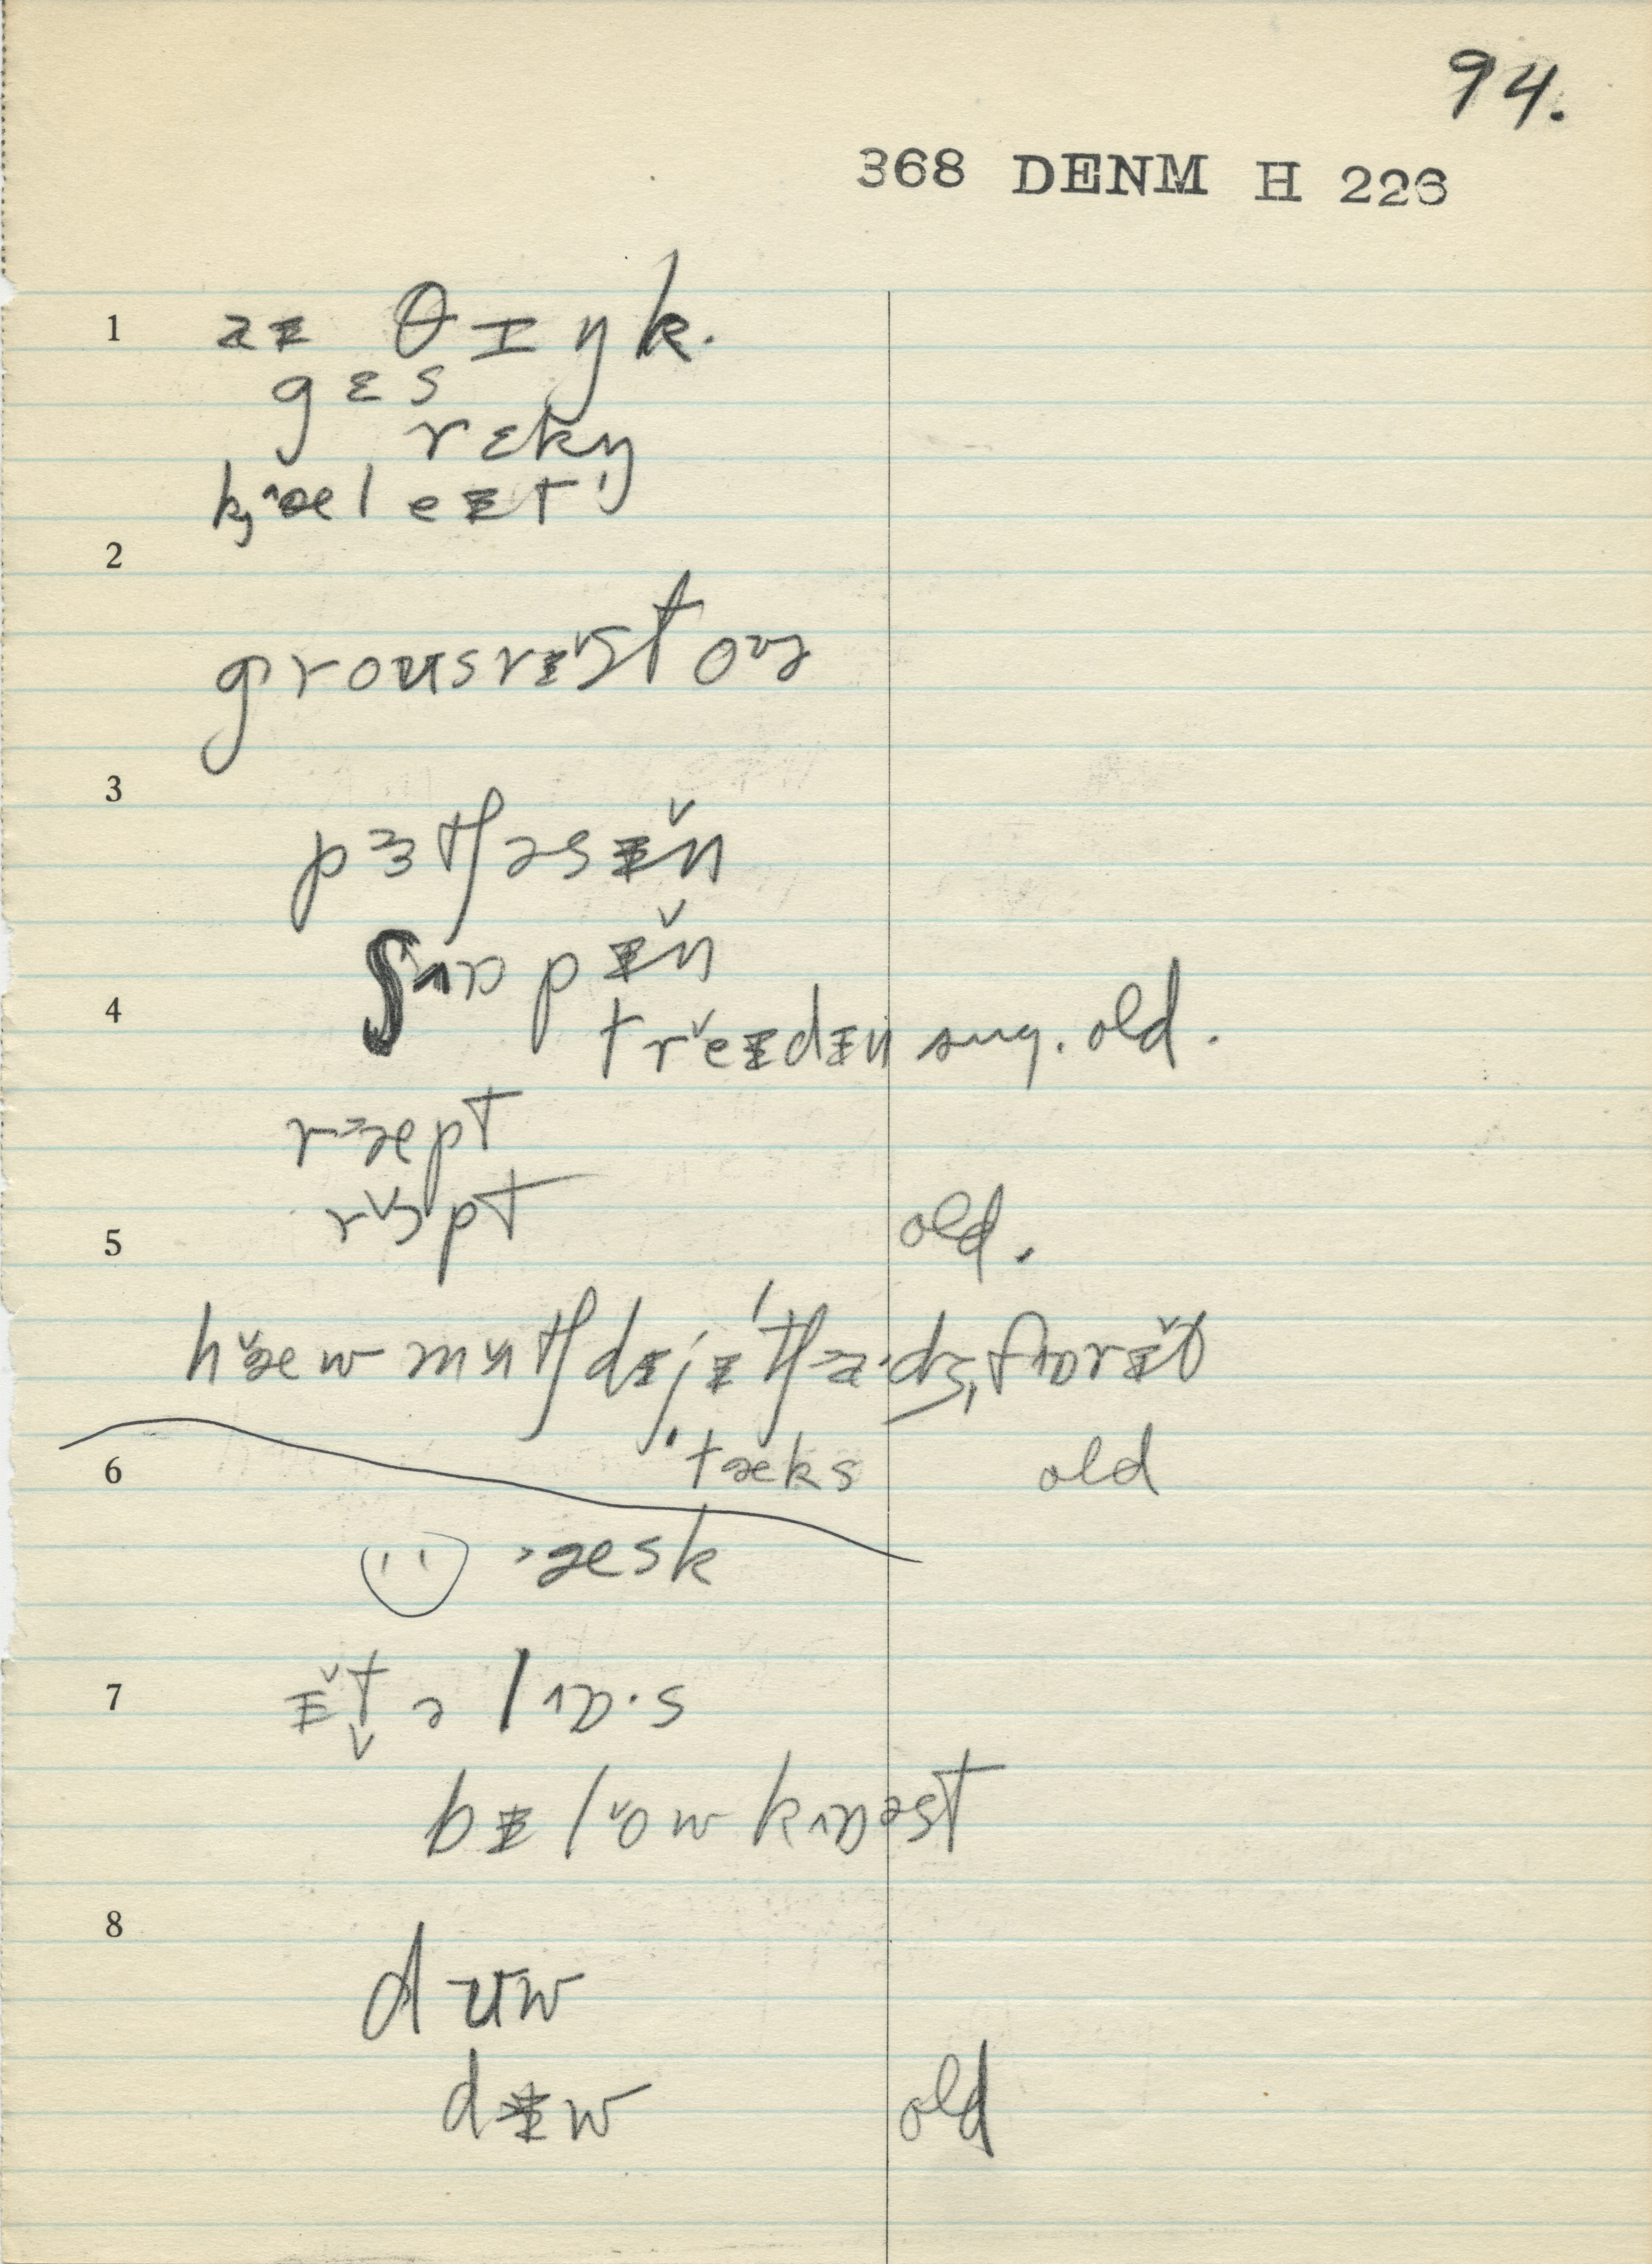 94.
368 DENM H 226
1 aɪ θɪŋk.
gɛs
rɛkŋ
kj^æl eɪt'
2
groʊsrɪst oɚ
3
pɜtʃəsɪn
ʃ^ɒpɪn
4 treɪdɪn sug. old.
r>æpt
rɔpt old.
5
hæw mʌtʃ dɪjɪ tʃa·dʒ, fɒrɪt
6 'tæks old
>æsk
7 ɪt ə l^ɒ·s
bɪlow k^ɒəst
8
dʊw
dɪw old